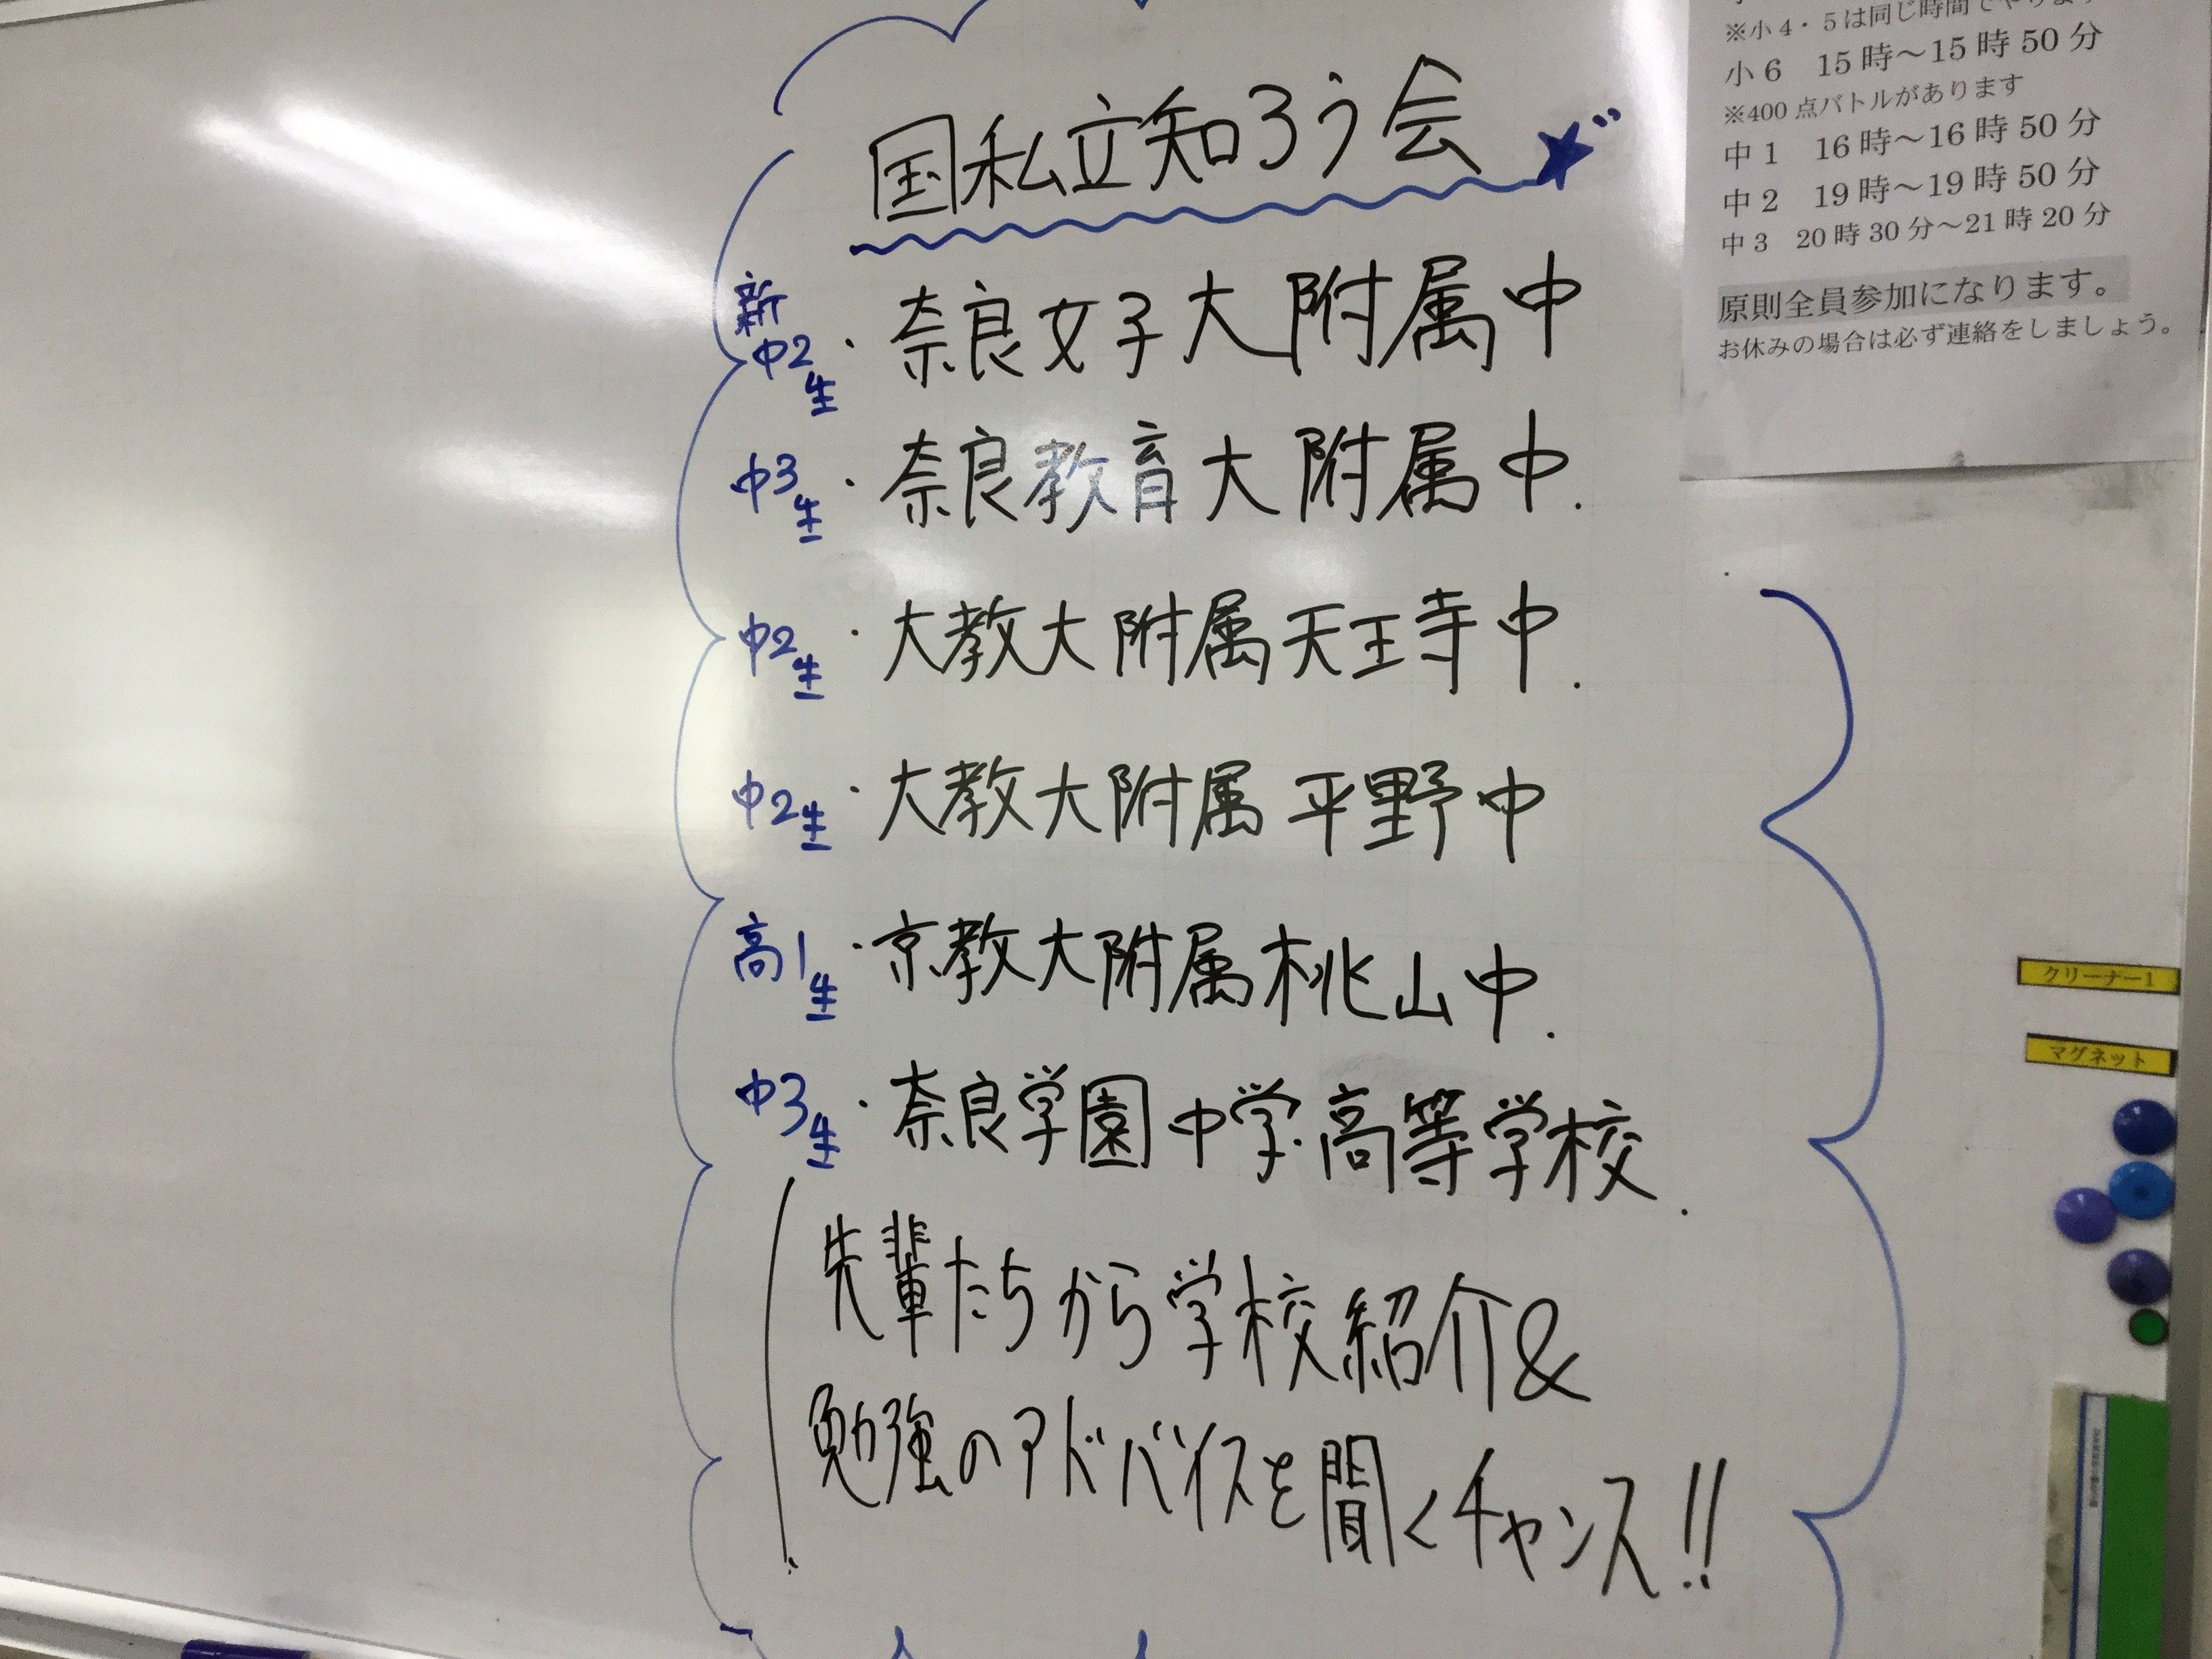 国私立知ろう会
新中2生・奈良女子大附属中
中3生・奈良教育大附属中.
中2生・大教大附属天王寺中.
中2生・大教大附属平野中
高1生・京教大附属桃山中.
中3生・奈良学園中学・高等学校.
先輩たちから学校紹介&
勉強のアドバイスを聞くチャンス!!
※小4・5は同じ時間でやります
小6 15時～15時50分
※400点バトルがあります
中1 16時～16時50分
中2 19時～19時50分
中3 20時30分～21時20分
原則全員参加になります。
お休みの場合は必ず連絡をしましょう。
クリーナー1
マグネット